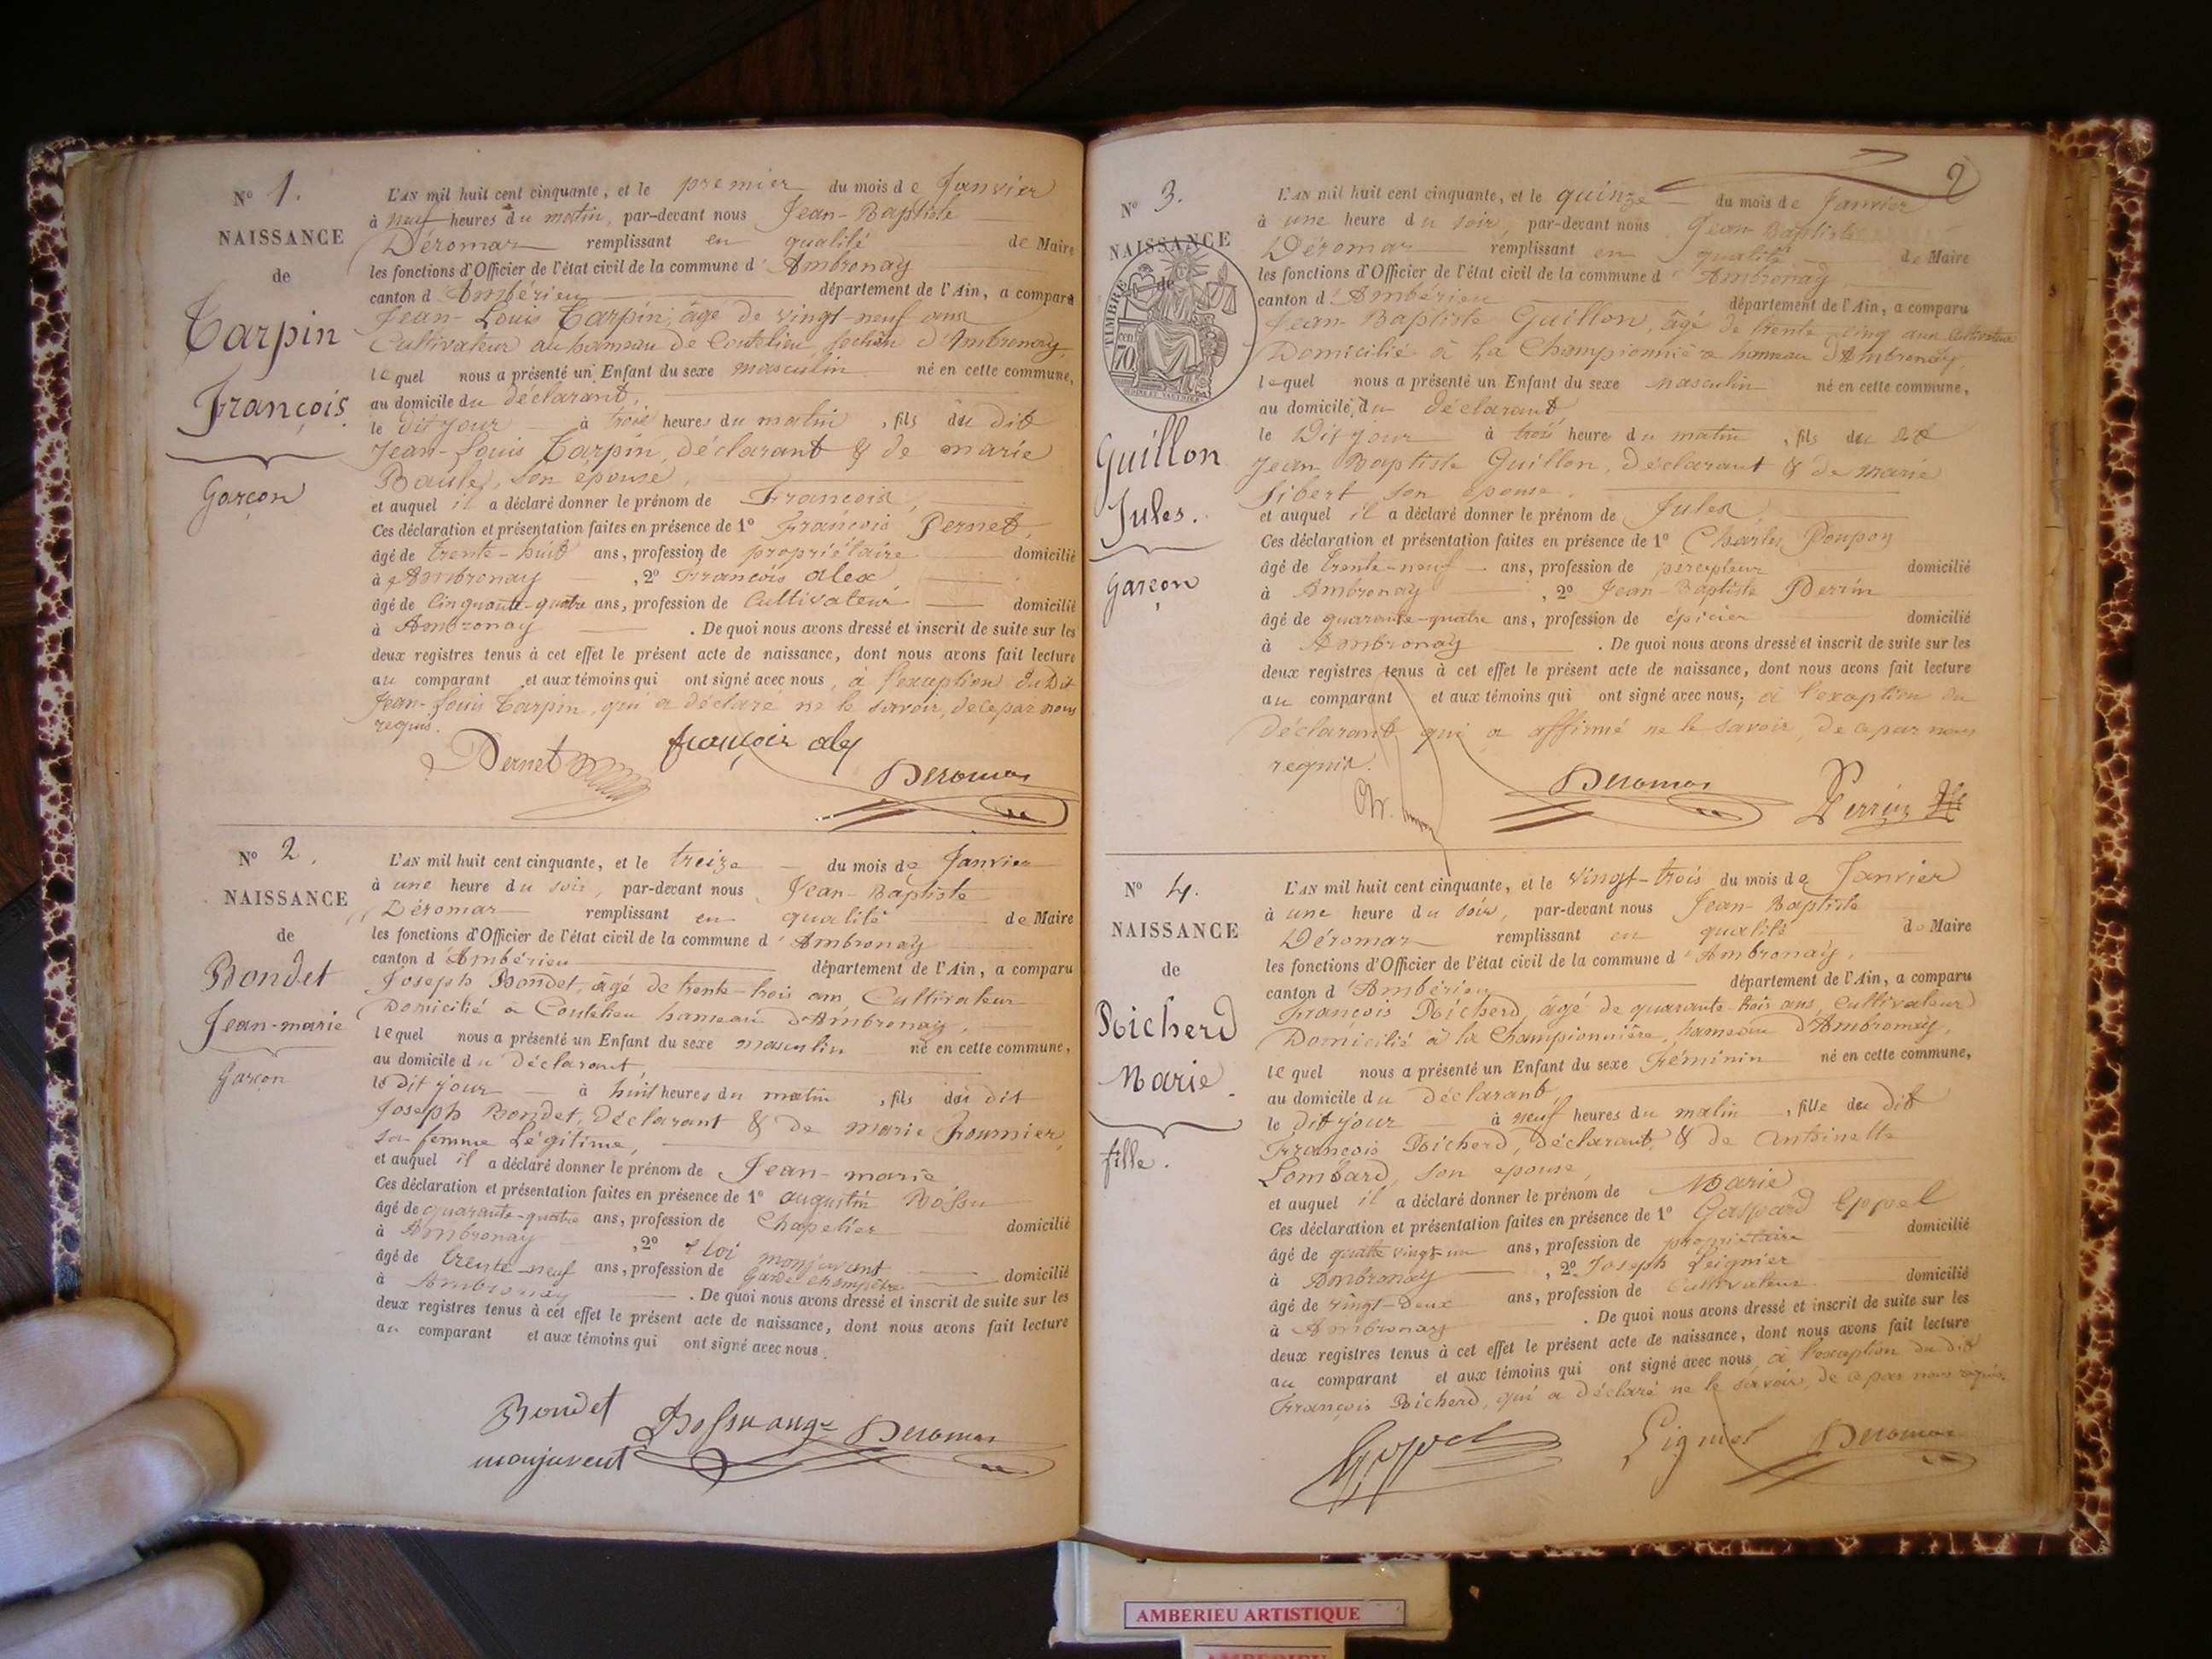 N° 1.
NAISSANCE
de
Tarpin
François.
Garçon
L'AN mil huit cent cinquante, et le premier du mois de Janvier
à neuf heures du matin, par-devant nous Jean-Baptiste
Déromas remplissant en qualité de Maire
les fonctions d'Officier de l'état civil de la commune d'Ambronay
canton d'Ambérieu département de l'Ain, a comparu
Jean-Louis Tarpin, âgé de vingt-neuf ans
Cultivateur au hameau de Coutelieu section d'Ambronay,
lequel nous a présenté un Enfant du sexe masculin né en cette commune,
au domicile du déclarant,
le dit jour à trois heures du matin, fils du dit
Jean-Louis Tarpin, déclarant & de marie
son épouse,
et auquel il a déclaré donner le prénom de François,
Ces déclaration et présentation faites en présence de 1° François Pernet,
âgé de trente-huit ans, profession de propriétaire domicilié
à Ambronay, 2° François alex,
âgé de Cinquante-quatre ans, profession de Cultivateur domicilié
à Ambronay. De quoi nous avons dressé et inscrit de suite sur les
deux registres tenus à cet effet le présent acte de naissance, dont nous avons fait lecture
au comparant et aux témoins qui ont signé avec nous, à l'exception du dit
Jean-Louis Tarpin, qui a déclaré ne le savoir, de ce par nous
requis.
Pernet françois alex
Deromas
N° 2.
NAISSANCE
de
Bondet
Jean-marie
Garçon
L'AN mil huit cent cinquante, et le treize du mois de Janvier
à une heure du soir, par-devant nous Jean-Baptiste
Déromas remplissant en qualité de Maire
les fonctions d'Officier de l'état civil de la commune d'Ambronay
canton d'Ambérieu département de l'Ain, a comparu
Joseph Bondet, âgé de trente-trois ans, Cultivateur
Domicilié à Coutelieu hameau d'Ambronay,
lequel nous a présenté un Enfant du sexe masculin né en cette commune,
au domicile du déclarant,
le dit jour à huit heures du matin, fils du dit
Joseph Bondet, déclarant & de marie Fournier,
sa femme légitime,
et auquel il a déclaré donner le prénom de Jean-marie
Ces déclaration et présentation faites en présence de 1° augustin Bossu
âgé de quarante-quatre ans, profession de Chapelier domicilié
à Ambronay, 2° Eloi monjuvent
âgé de trente-neuf ans, profession de Garde champêtre domicilié
à Ambronay. De quoi nous avons dressé et inscrit de suite sur les
deux registres tenus à cet effet le présent acte de naissance, dont nous avons fait lecture
au comparant et aux témoins qui ont signé avec nous.
Bondet Bossu Deromas
monjuvent
2
N° 3.
NAISSANCE
de
TIMBRE
70
Guillon
Jules.
garçon
L'AN mil huit cent cinquante, et le quinze du mois de Janvier
à une heure du soir, par-devant nous Jean-Baptiste
Déromas remplissant en qualité de Maire
les fonctions d'Officier de l'état civil de la commune d'Ambronay
canton d'Ambérieu département de l'Ain, a comparu
Jean-Baptiste Guillon, âgé de trente cinq ans Cultivateur
Domicilié à La Championnière hameau d'Ambronay,
lequel nous a présenté un Enfant du sexe masculin né en cette commune,
au domicile du déclarant
le Dit jour à trois heures du matin, fils du dit
Jean Baptiste Guillon, déclarant & de marie
Sibert son épouse,
et auquel il a déclaré donner le prénom de Jules
Ces déclaration et présentation faites en présence de 1° Charles Poupon
âgé de trente-neuf ans, profession de percepteur domicilié
à Ambronay, 2° Jean-Baptiste Perrin
âgé de quarante-quatre ans, profession de épicier domicilié
à Ambronay. De quoi nous avons dressé et inscrit de suite sur les
deux registres tenus à cet effet le présent acte de naissance, dont nous avons fait lecture
au comparant et aux témoins qui ont signé avec nous, à l'exception du
déclarant qui a affirmé ne le savoir, de ce par nous
requis.
Deromas Perrin
N° 4.
NAISSANCE
de
Richerd
Marie.
fille.
L'AN mil huit cent cinquante, et le vingt-trois du mois de Janvier
à une heure du soir, par-devant nous Jean-Baptiste
Déromas remplissant en qualité de Maire
les fonctions d'Officier de l'état civil de la commune d'Ambronay,
canton d'Ambérieu département de l'Ain, a comparu
François Richerd, âgé de quarante-trois ans, cultivateur
Domicilié à la Championnière, hameau d'Ambronay,
lequel nous a présenté un Enfant du sexe Féminin né en cette commune,
au domicile du déclarant,
le dit jour à neuf heures du matin, fille du dit
François Richerd, déclarant, & de Antoinette
Lombard, son épouse,
et auquel il a déclaré donner le prénom de Marie
Ces déclaration et présentation faites en présence de 1° Gaspard Eppel
âgé de quatre vingt-un ans, profession de propriétaire domicilié
à Ambronay, 2° Joseph Leignier
âgé de vingt-deux ans, profession de Cultivateur domicilié
à Ambronay. De quoi nous avons dressé et inscrit de suite sur les
deux registres tenus à cet effet le présent acte de naissance, dont nous avons fait lecture
au comparant et aux témoins qui ont signé avec nous, à l'exception du dit
François Richerd, qui a déclaré ne le savoir, de ce par nous requis.
Deromas
AMBERIEU ARTISTIQUE
AMBERIEU